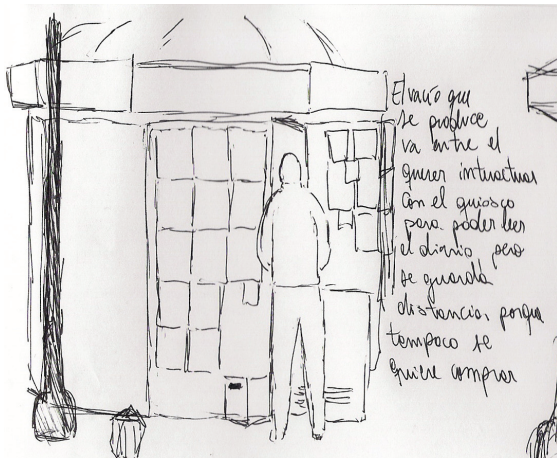 El vacío que
se produce
va entre el
querer interactuar
con el quiosco
para poder leer
el diario pero
se guarda
distancia, porque
tampoco se
quiere comprar